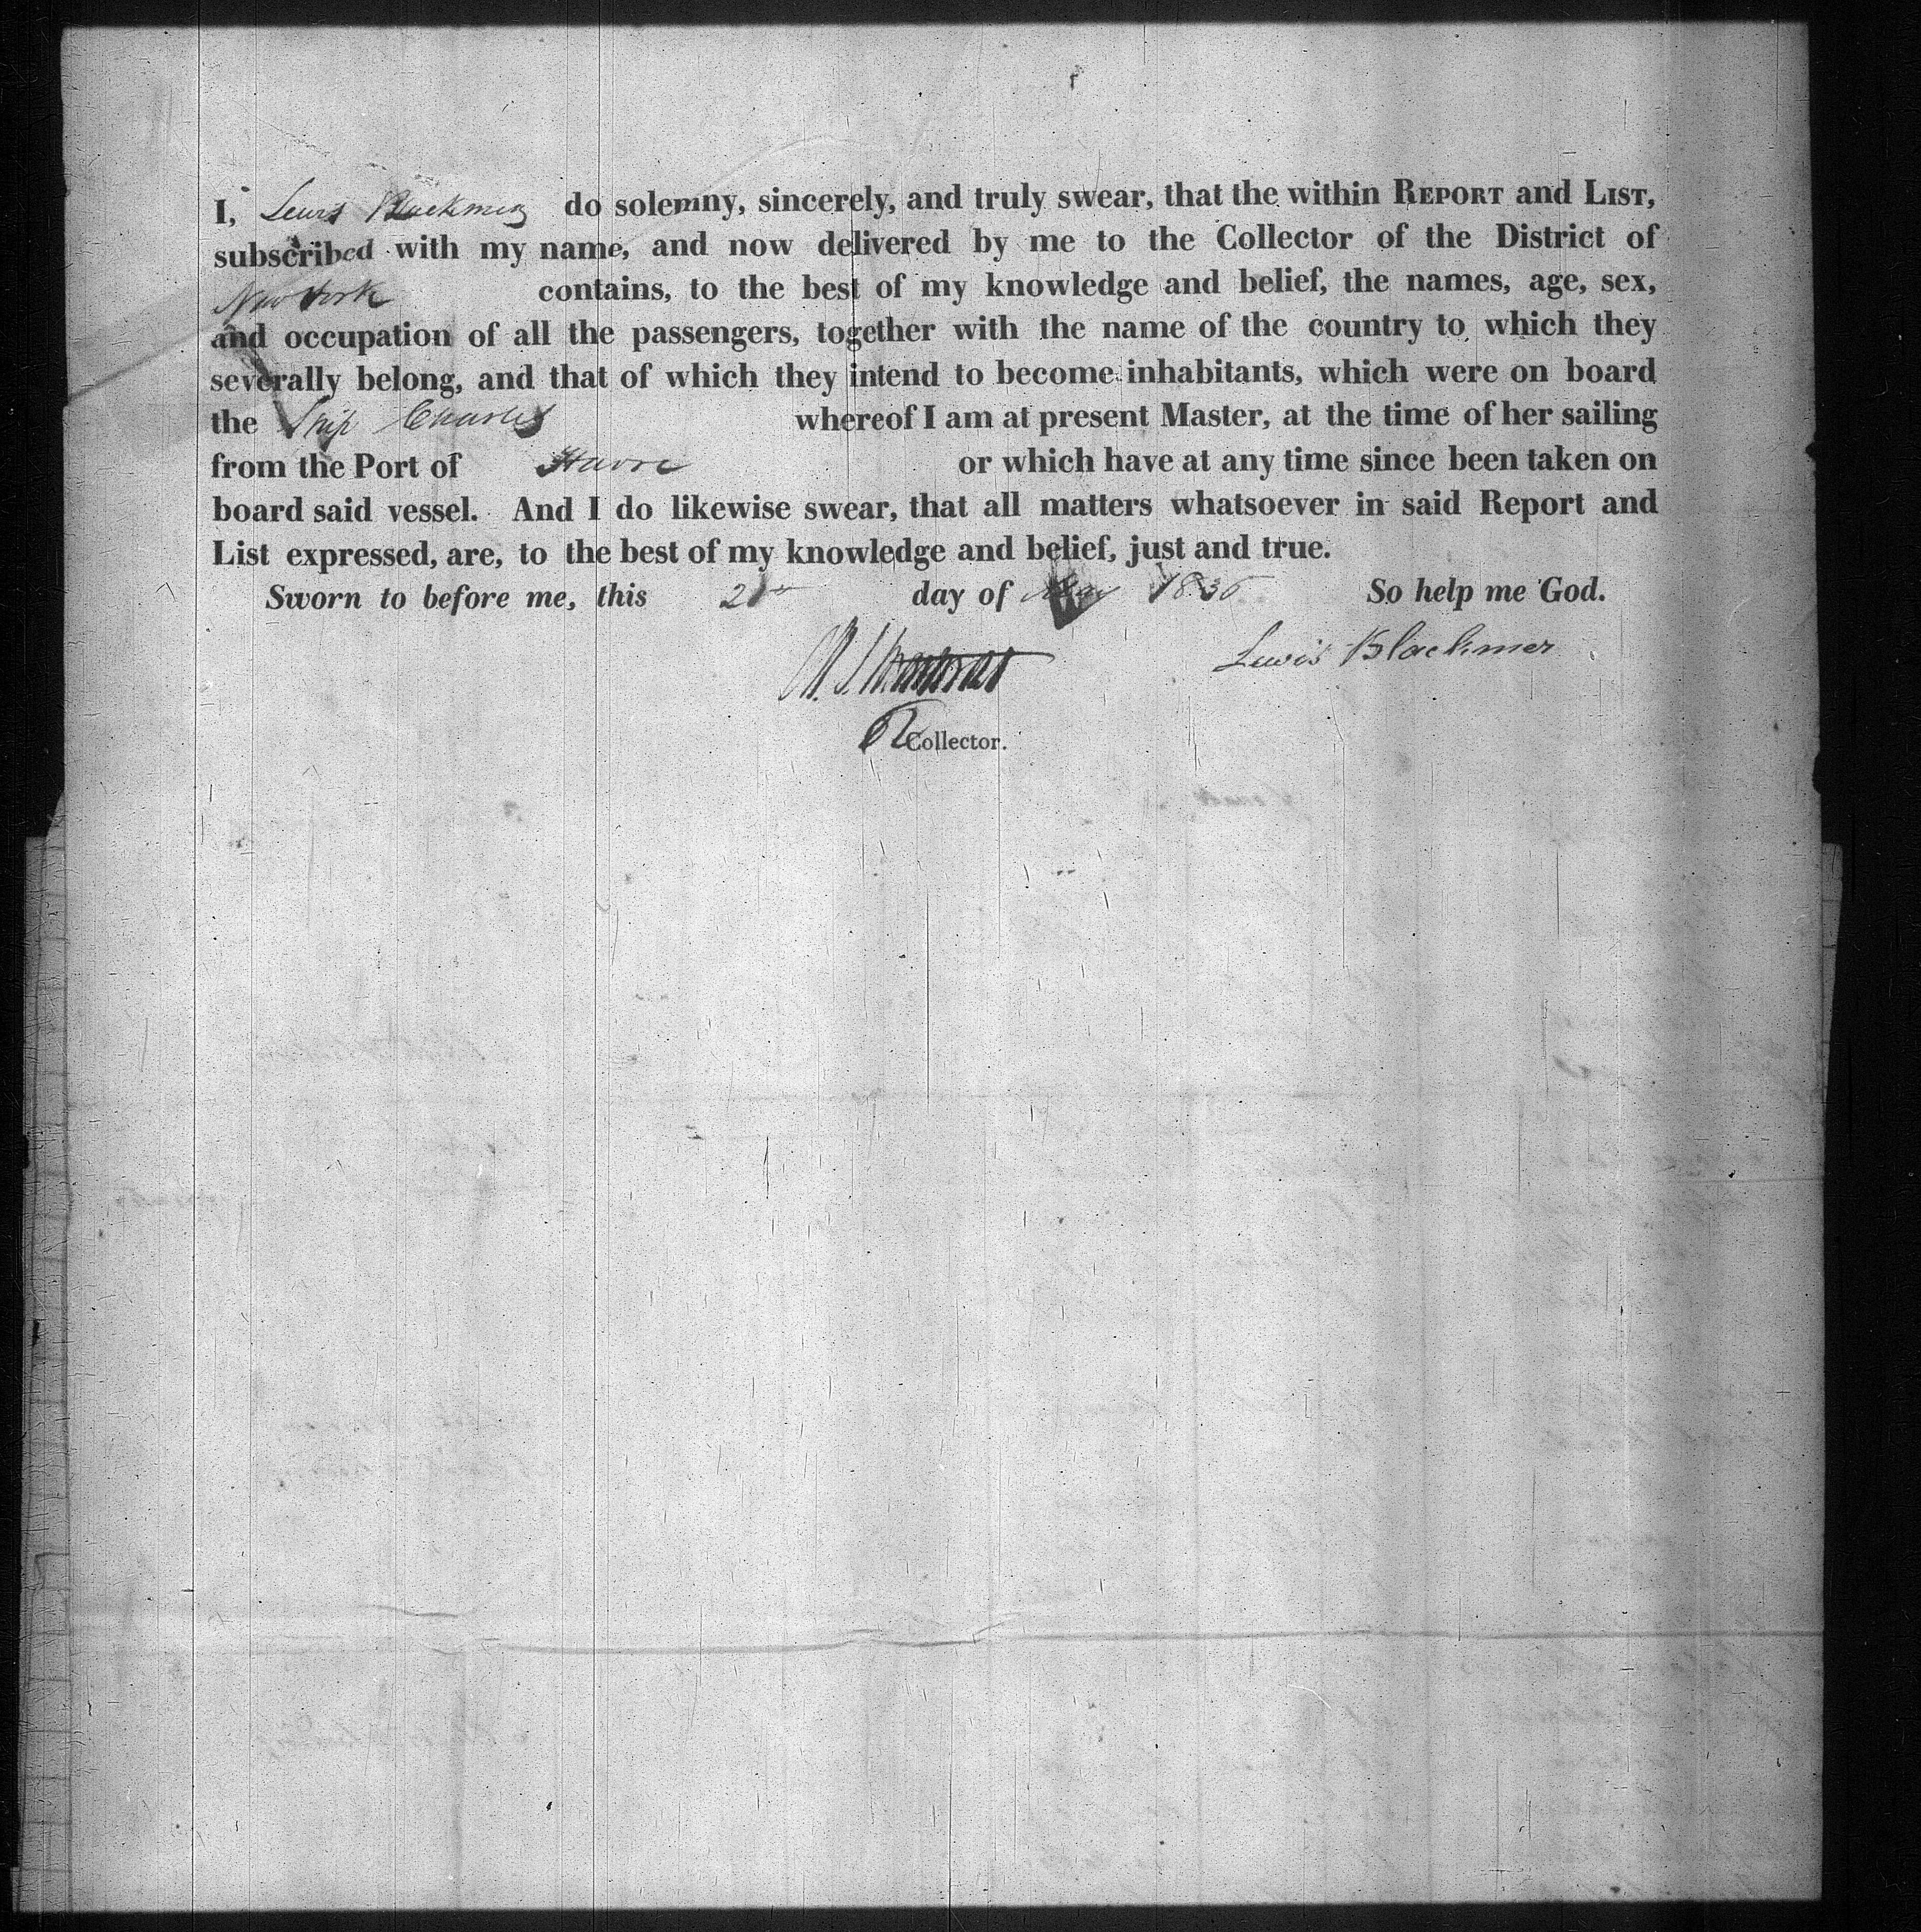 I, Lewis Blackmer do solemnly, sincerely, and truly swear, that the within REPORT and LIST,
subscribed with my name, and now delivered by me to the Collector of the District of
New York contains, to the best of my knowledge and belief, the names, age, sex,
and occupation of all the passengers, together with the name of the country to which they
severally belong, and that of which they intend to become inhabitants, which were on board
the Ship Charles whereof I am at present Master, at the time of her sailing
from the Port of Havre or which have at any time since been taken on
board said vessel. And I do likewise swear, that all matters whatsoever in said Report and
List expressed, are, to the best of my knowledge and belief, just and true.
Sworn to before me, this day of May 1836 So help me God.
Lewis Blackmer
Collector.